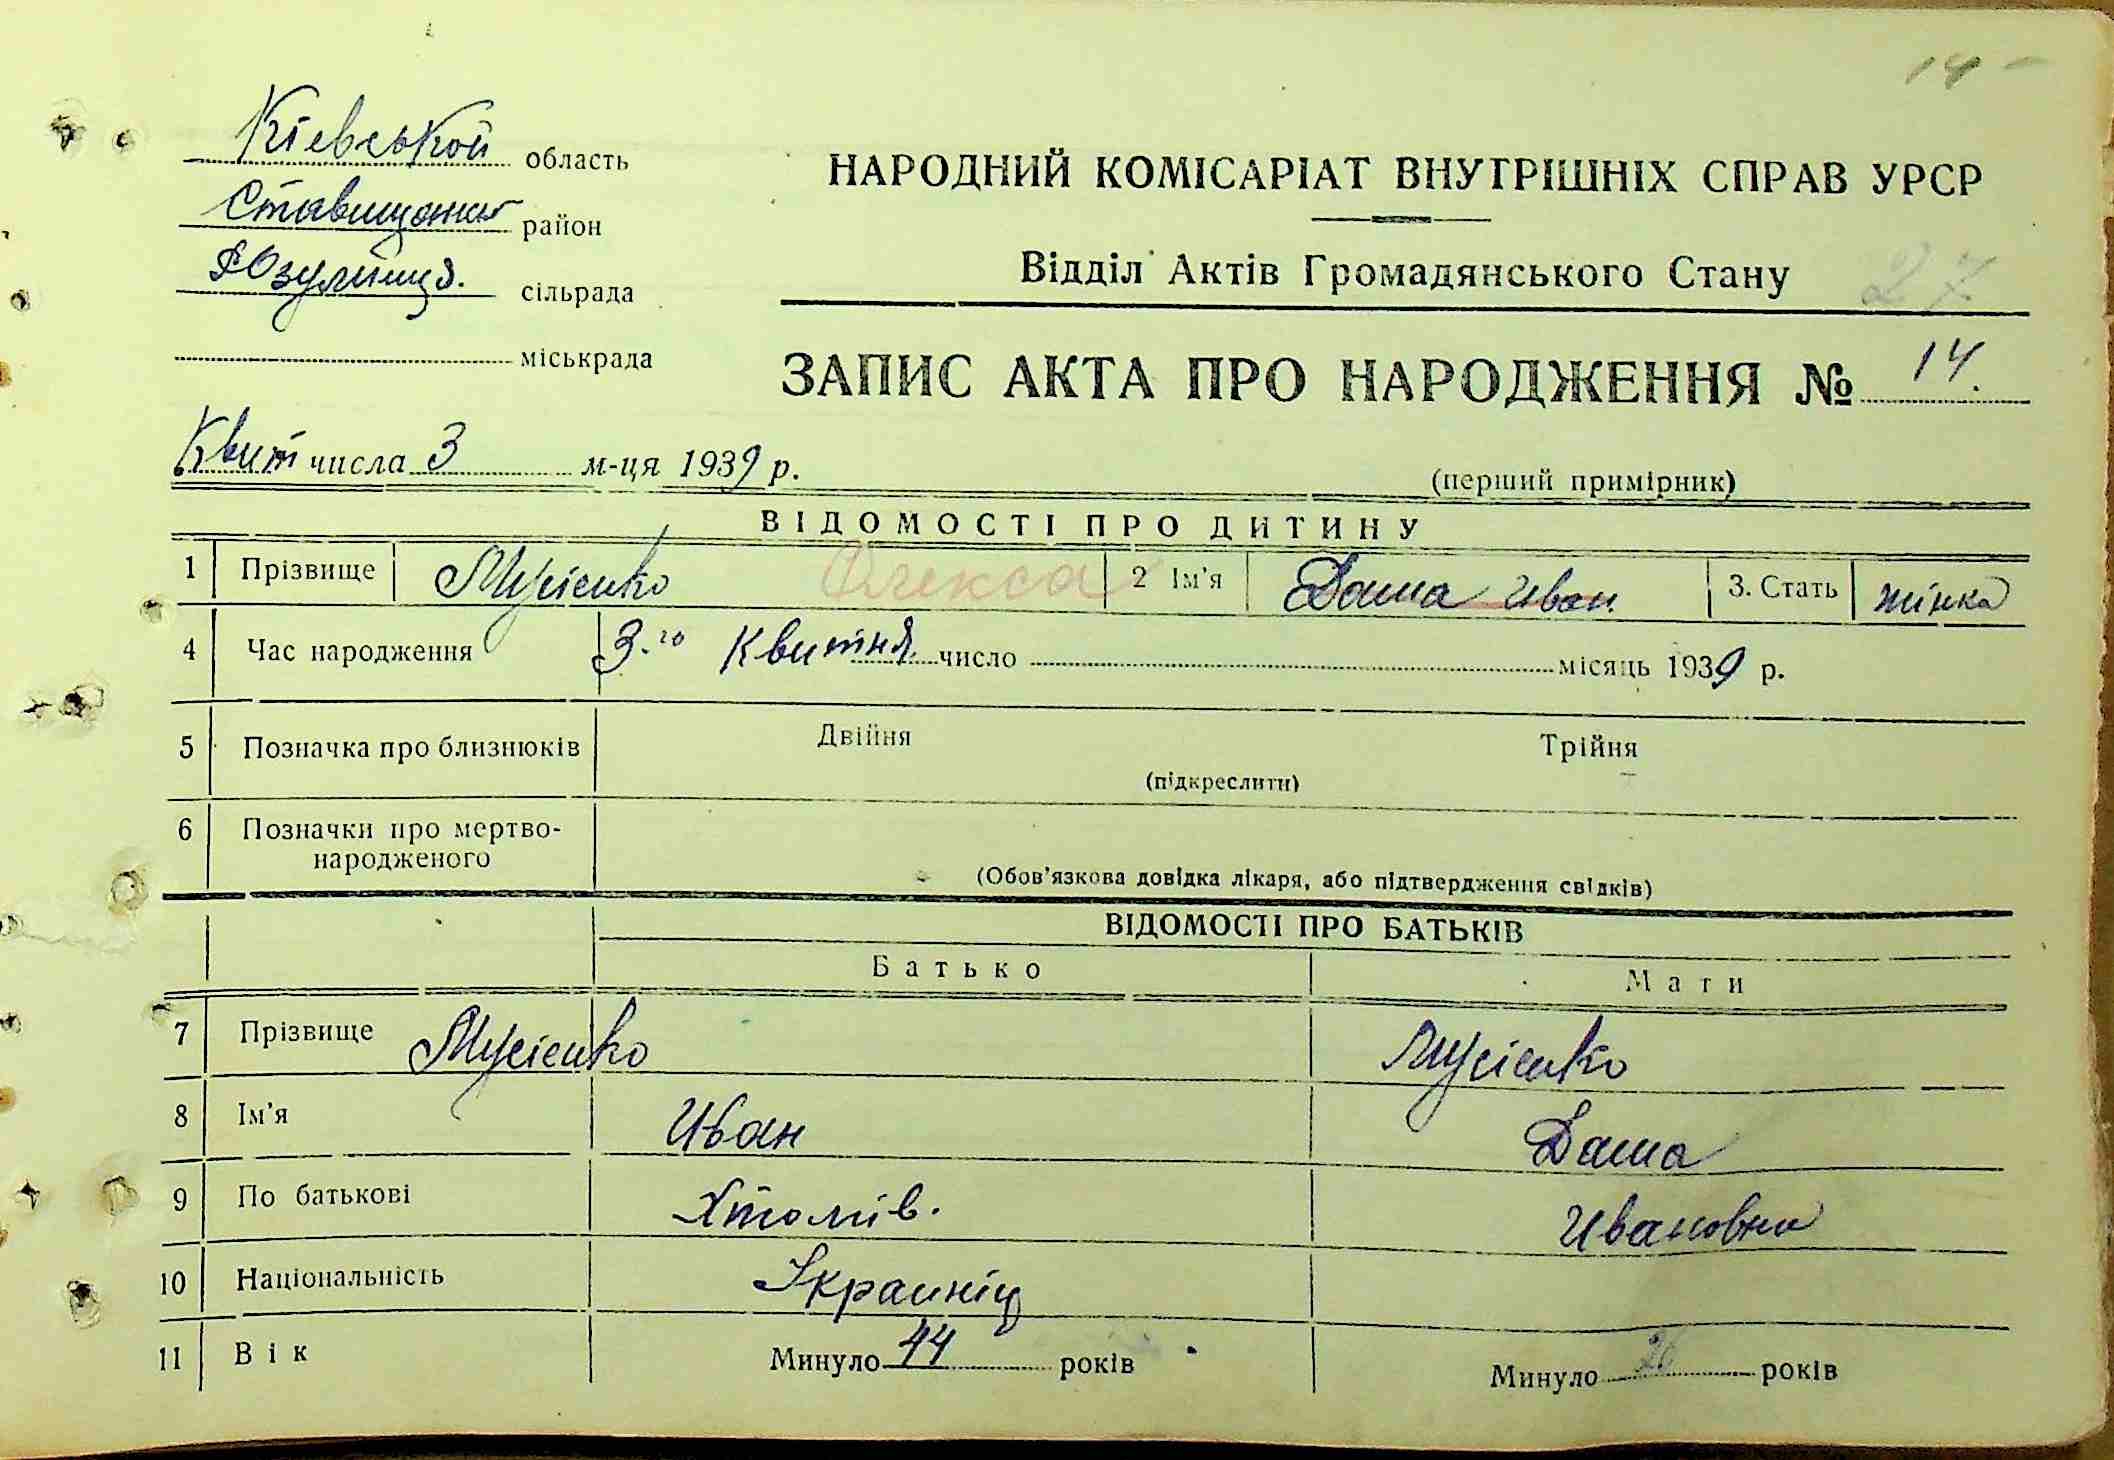 14
Кіевськой область
Ставищанск район
сільрада
міськрада
НАРОДНИЙ КОМІСАРІАТ ВНУТРІШНІХ СПРАВ УРСР
Відділ Актів Громадянського Стану
27
ЗАПИС АКТА ПРО НАРОДЖЕННЯ № 14.
Квит числа 3 м-ця 1939 р.
(перший примірник)
ВІДОМОСТІ ПРО ДИТИНУ
1 Прізвище Мусіенко Олекса 2 Ім'я Даша Иван 3. Стать жінка
4 Час народження 3.го Квитня число місяць 1939 р.
5 Позначка про близнюків Двійня Трійня
(підкреслити)
6 Позначки про мертво-
народженого
(Обов'язкова довідка лікаря, або підтвердження свідків)
ВІДОМОСТІ ПРО БАТЬКІВ
Батько Мати
7 Прізвище Мусіенко Мусіенко
8 Ім'я Иван Даша
9 По батькові Ивановна
10 Національність Украиніц
11 Вік Минуло 44 років Минуло 26 років